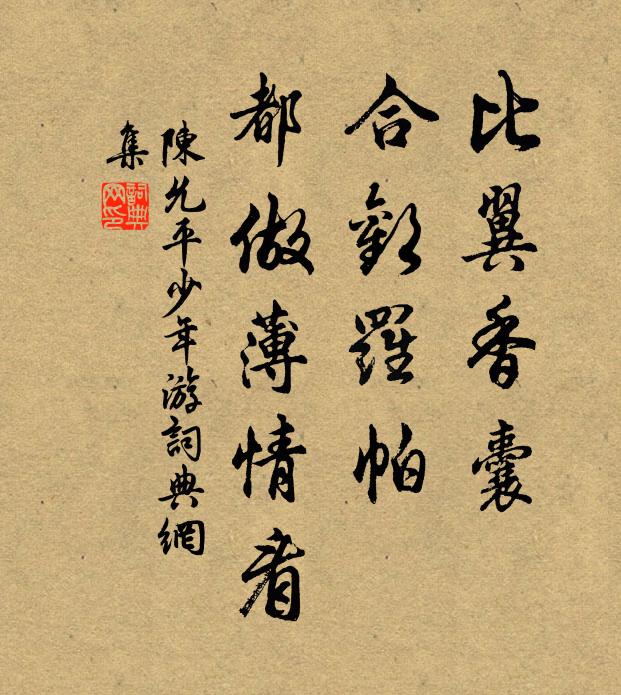 比翼香囊
合歡羅帕
都做薄情看
陳允平少年游詞典網
集
詞典網印